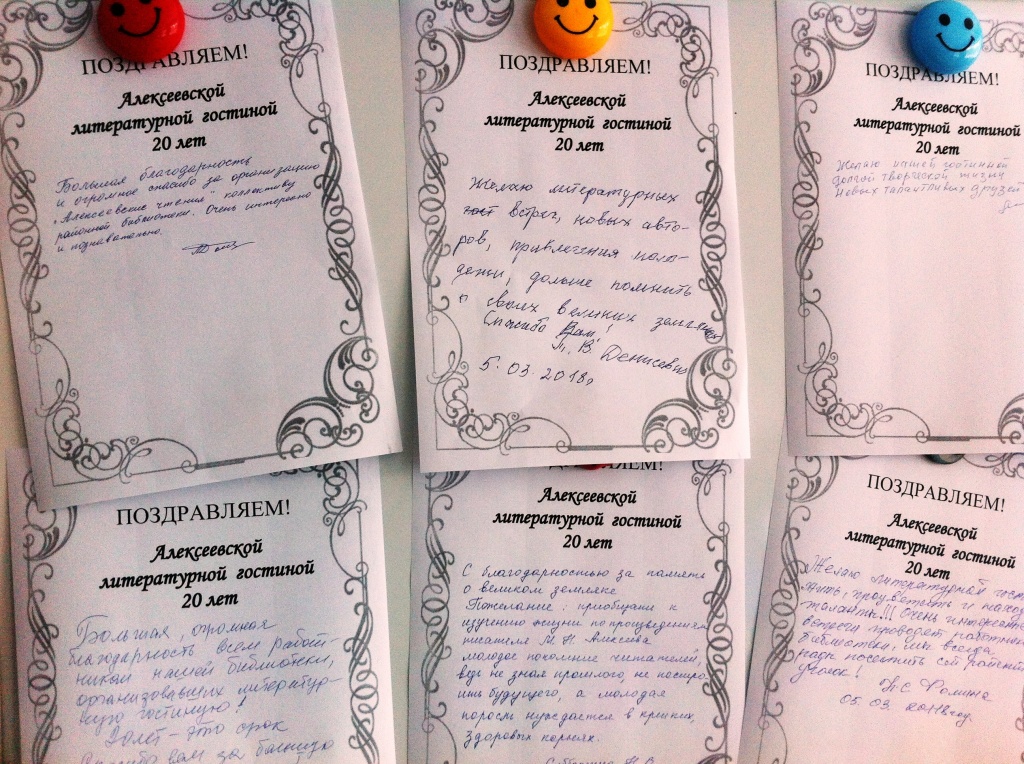 ПОЗДРАВЛЯЕМ!
Алексеевской
литературной гостиной
20 лет
Большая благодарность
и огромное спасибо за организацию
"Алексеевские чтения" коллективу
районной библиотеки. Очень интересно
и познавательно.
ПОЗДРАВЛЯЕМ!
Алексеевской
литературной гостиной
20 лет
Желаю литературных
встреч, новых авто-
ров, привлечения моло-
дежи, дольше помнить
о своих великих земляках
Спасибо Вам!
М. В. Денисевич
5. 03. 2018г
ПОЗДРАВЛЯЕМ!
Алексеевской
литературной гостиной
20 лет
Желаю нашей гостинной
долгой творческой жизни
Новых талантливых друзей
ПОЗДРАВЛЯЕМ!
Алексеевской
литературной гостиной
20 лет
Большая, огромная
благодарность всем работ-
никам нашей библиотеки,
организовавших литератур-
ную гостиную!
20 лет - это срок
Спасибо вам за большую
ПОЗДРАВЛЯЕМ!
Алексеевской
литературной гостиной
20 лет
С благодарностью за память
о великом земляке
Пожелание: приобщати к
изучению жизни по произведениям
писателя М. Н. Алексеева
молодое поколение читателей,
ведь не зная прошлого, не постро-
ишь будущего, а молодая
поросль нуждается в крепких,
здоровых корнях.
ПОЗДРАВЛЯЕМ!
Алексеевской
литературной гостиной
20 лет
Желаю литературной гост
жить, процветать и наход
таланты!!! Очень интересно
встречи проводят работники
библиотеки, мы всегда
рады посетить сей райский
уголок!
Н.С. Фомина
05. 03. 2018 год.